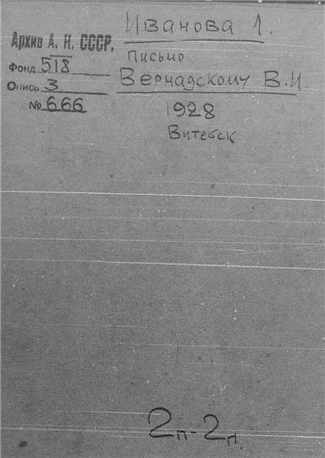 Иванова Л.
Архив А. Н. СССР,
письмо
Фонд 518
Вернадскому В.И.
Опись 3
№ 666
1928
Витебск
2п-2л